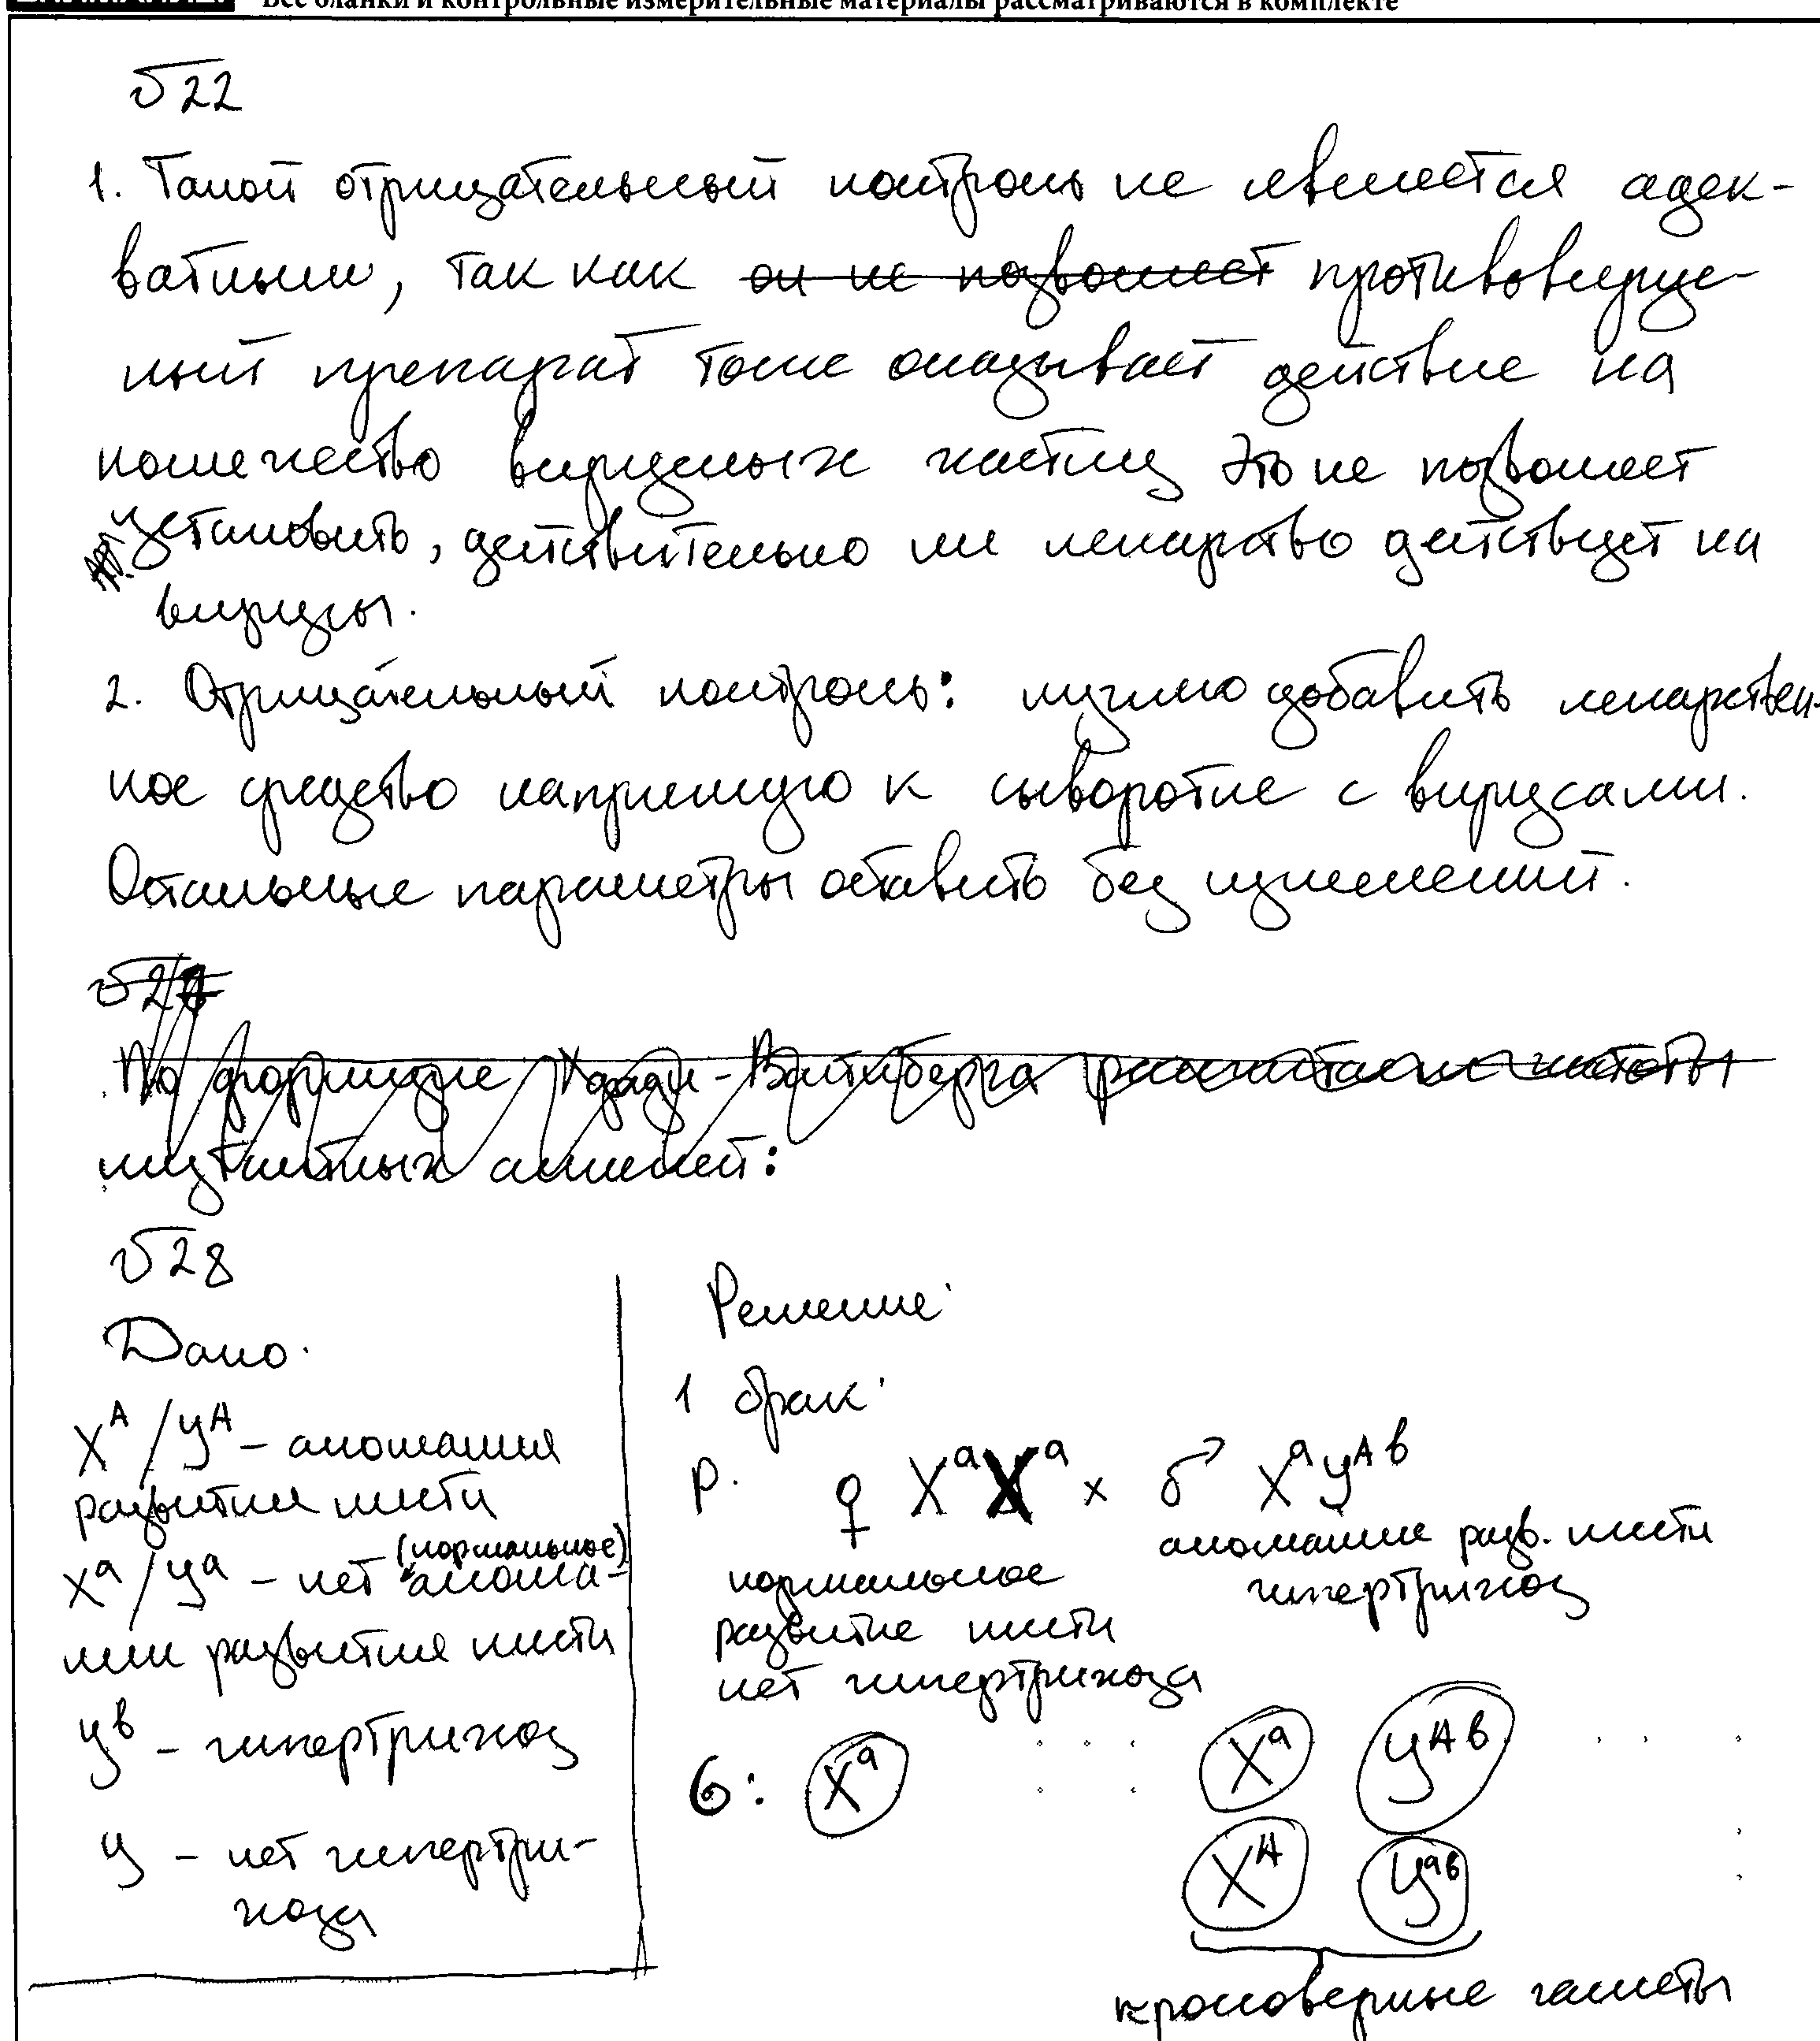 Все бланки и контрольные измерительные материалы рассматриваются в комплекте
√22
1. Такой отрицательный контроль не является адек-
ватным, так как он не позволяет противовирус-
ный препарат тоже оказывает действие на
количество вирусных частиц это не позволяет
установить, действительно ли лекарство действует на
вирусы.
2. Отрицательный контроль: нужно добавить лекарствен-
ное средство напрямую к сыворотке с вирусами.
Остальные параметры оставить без изменений.
√27
По формуле Харди-Вайнберга рассчитаем частоты
мутантных аллелей:
√28
Дано.
X^A/y^A – аномалия
развития кисти
X^a/y^a – нет (нормальное) анома-
лии развития кисти
y^b – гипертрихоз
y – нет гипертри-
хоза
Решение:
1 брак:
P. ♀ X^a X^a x ♂ X^a y^Ab
аномалие разв. кисти
гипертрихоз
нормальное
развитие кисти
нет гипертрихоза
G: X^a X^a y^Ab
X^A y^ab
кроссоверные гаметы